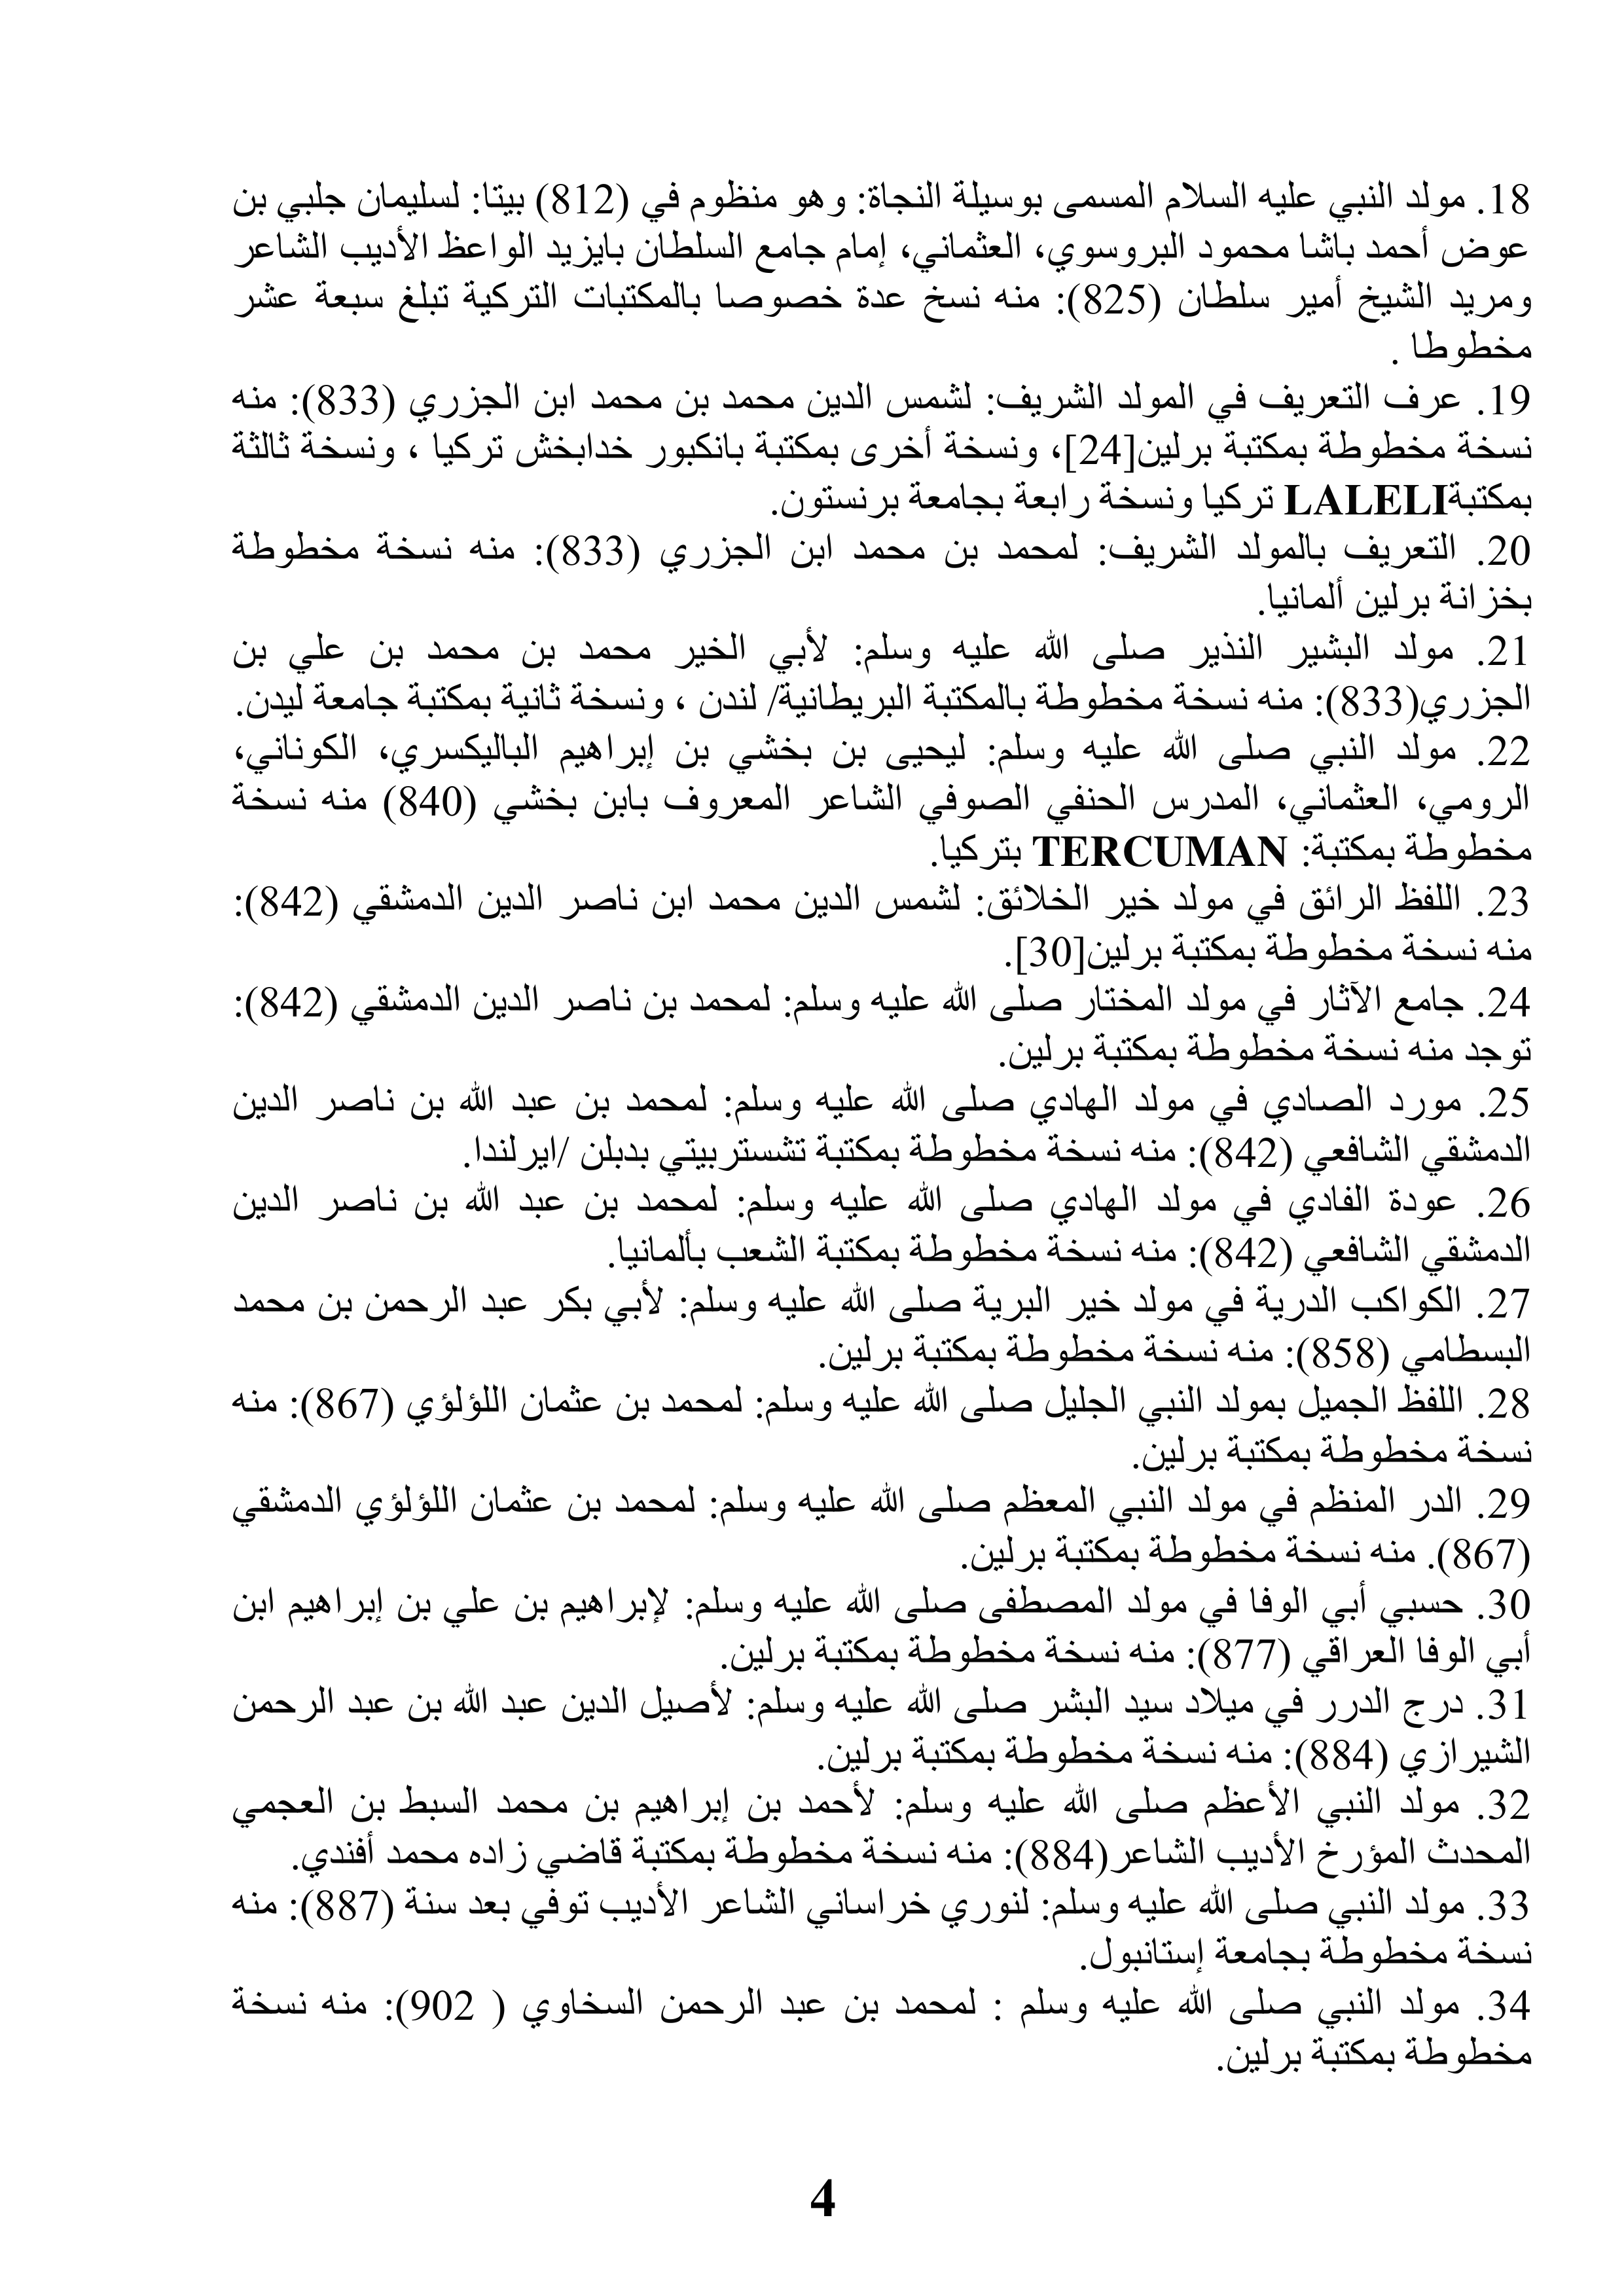 18. مولد النبي عليه السلام المسمى بوسيلة النجاة: وهو منظوم في (812) بيتا: لسليمان جلبي بن
عوض أحمد باشا محمود البروسوي، العثماني، إمام جامع السلطان بايزيد الواعظ الأديب الشاعر
ومريد الشيخ أمير سلطان (825): منه نسخ عدة خصوصا بالمكتبات التركية تبلغ سبعة عشر
مخطوطا .
19. عرف التعريف في المولد الشريف: لشمس الدين محمد بن محمد ابن الجزري (833): منه
نسخة مخطوطة بمكتبة برلين[24]، ونسخة أخرى بمكتبة بانكبور خدابخش تركيا ، ونسخة ثالثة
بمكتبةLALELI تركيا ونسخة رابعة بجامعة برنستون.
20. التعريف بالمولد الشريف: لمحمد بن محمد ابن الجزري (833): منه نسخة مخطوطة
بخزانة برلين ألمانيا.
21. مولد البشير النذير صلى الله عليه وسلم: لأبي الخير محمد بن محمد بن علي بن
الجزري(833): منه نسخة مخطوطة بالمكتبة البريطانية/ لندن ، ونسخة ثانية بمكتبة جامعة ليدن.
22. مولد النبي صلى الله عليه وسلم: ليحيى بن بخشي بن إبراهيم الباليكسري، الكوناني،
الرومي، العثماني، المدرس الحنفي الصوفي الشاعر المعروف بابن بخشي (840) منه نسخة
مخطوطة بمكتبة: TERCUMAN بتركيا.
23. اللفظ الرائق في مولد خير الخلائق: لشمس الدين محمد ابن ناصر الدين الدمشقي (842):
منه نسخة مخطوطة بمكتبة برلين[30].
24. جامع الآثار في مولد المختار صلى الله عليه وسلم: لمحمد بن ناصر الدين الدمشقي (842):
توجد منه نسخة مخطوطة بمكتبة برلين.
25. مورد الصادي في مولد الهادي صلى الله عليه وسلم: لمحمد بن عبد الله بن ناصر الدين
الدمشقي الشافعي (842): منه نسخة مخطوطة بمكتبة تشستربيتي بدبلن /ايرلندا.
26. عودة الفادي في مولد الهادي صلى الله عليه وسلم: لمحمد بن عبد الله بن ناصر الدين
الدمشقي الشافعي (842): منه نسخة مخطوطة بمكتبة الشعب بألمانيا.
27. الكواكب الدرية في مولد خير البرية صلى الله عليه وسلم: لأبي بكر عبد الرحمن بن محمد
البسطامي (858): منه نسخة مخطوطة بمكتبة برلين.
28. اللفظ الجميل بمولد النبي الجليل صلى الله عليه وسلم: لمحمد بن عثمان اللؤلؤي (867): منه
نسخة مخطوطة بمكتبة برلين.
29. الدر المنظم في مولد النبي المعظم صلى الله عليه وسلم: لمحمد بن عثمان اللؤلؤي الدمشقي
(867). منه نسخة مخطوطة بمكتبة برلين.
30. حسبي أبي الوفا في مولد المصطفى صلى الله عليه وسلم: لإبراهيم بن علي بن إبراهيم ابن
أبي الوفا العراقي (877): منه نسخة مخطوطة بمكتبة برلين.
31. درج الدرر في ميلاد سيد البشر صلى الله عليه وسلم: لأصيل الدين عبد الله بن عبد الرحمن
الشيرازي (884): منه نسخة مخطوطة بمكتبة برلين.
32. مولد النبي الأعظم صلى الله عليه وسلم: لأحمد بن إبراهيم بن محمد السبط بن العجمي
المحدث المؤرخ الأديب الشاعر(884): منه نسخة مخطوطة بمكتبة قاضي زاده محمد أفندي.
33. مولد النبي صلى الله عليه وسلم: لنوري خراساني الشاعر الأديب توفي بعد سنة (887): منه
نسخة مخطوطة بجامعة إستانبول.
34. مولد النبي صلى الله عليه وسلم : لمحمد بن عبد الرحمن السخاوي ( 902): منه نسخة
مخطوطة بمكتبة برلين.
4